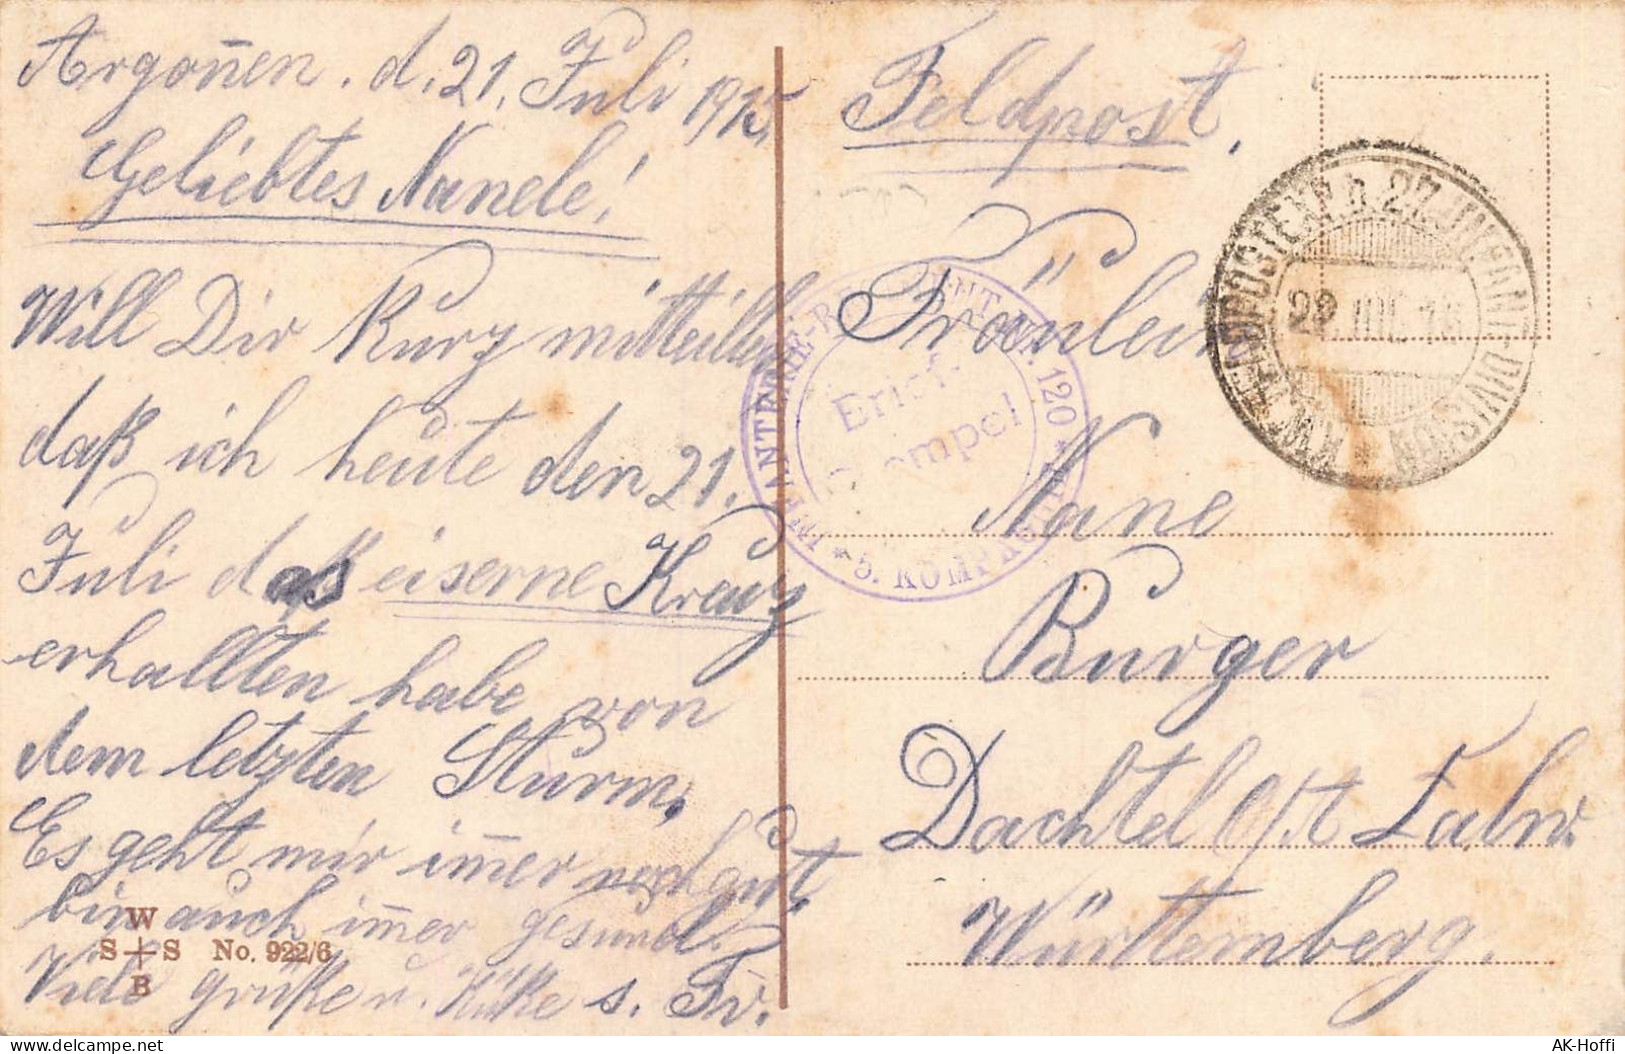 Argonnen. d. 21. Juli 1915.
Geliebtes Nanele!
Will Dir Kurz mitteillen
daß ich heute den 21.
Juli das eiserne Kreuz
erhallten habe von
dem letzten Sturm.
Es geht mir im̅er noch gut,
bin auch im̅er gesund.
Viele grüße u. Küße s. Fr.
W
S+S No. 922/6
B
Feldpost.
Fräulein
Nane
Burger
Dachtel O/A Calw.
Württemberg.
INFANTERIE-REGIMENT Nr. 120 * 5. KOMPAGNIE *
Brief-
Stempel
K.W. FELDPOSTEXP. b. 27. INFANT-DIVISION *
22 JUL 15
AK-Hoffi